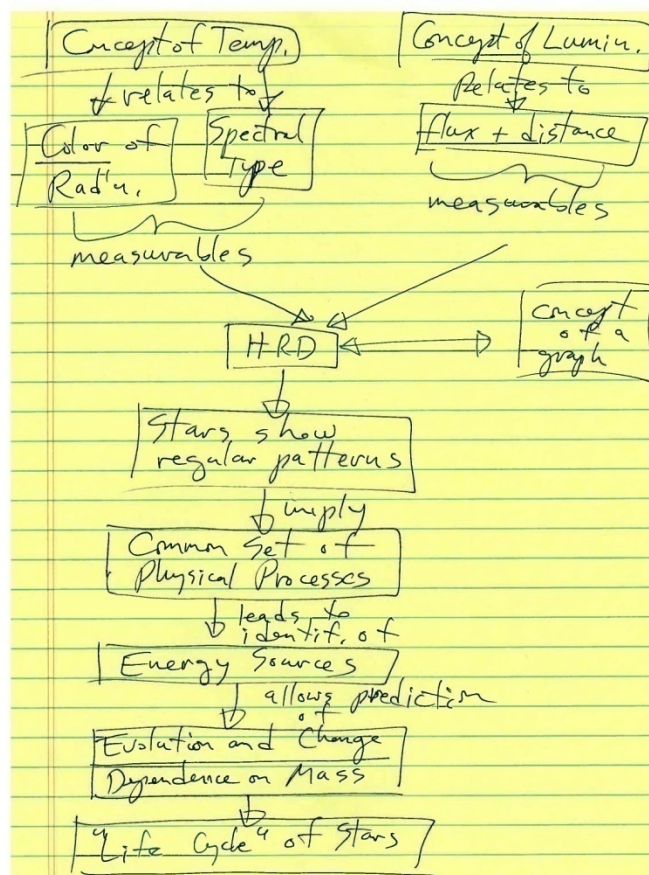 Concept of Temp.
relates to
Color of
Rad'n.
Spectral
Type
measurables
Concept of Lumin.
Relates to
flux + distance
measurables
HRD
concept
of a
graph
Stars show
regular patterns
imply
Common Set of
Physical Processes
leads to
identif. of
Energy Sources
allows prediction
of
Evolution and Change
Dependence on Mass
"Life Cycle" of Stars